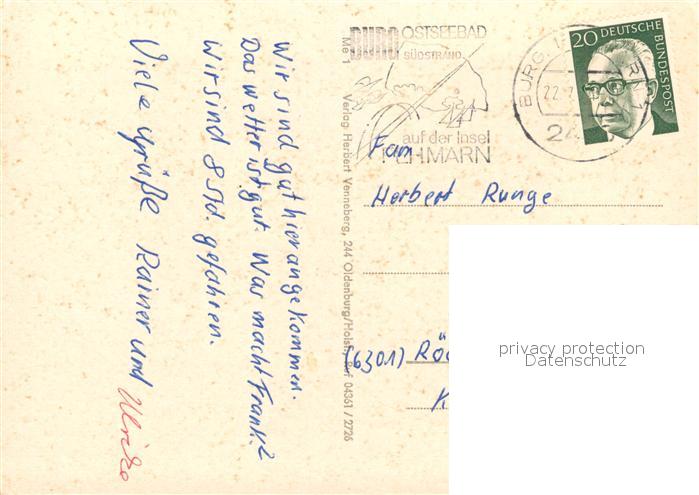 Wir sind gut hier angekommen.
Das wetter ist gut. Was macht Frank?
Wir sind 8 Std. gefahren.
Viele Grüße Rainer und Ulrike
Me 1 Verlag Herbert Venneberg, 244 Oldenburg/Holst. Ruf 04361 / 2726
BURG OSTSEEBAD
SÜDSTRAND
auf der Insel
FEHMARN
BURG
22.
24
20 DEUTSCHE
BUNDESPOST
Fam
Herbert Runge
(6301) Rö
K
privacy protection
Datenschutz